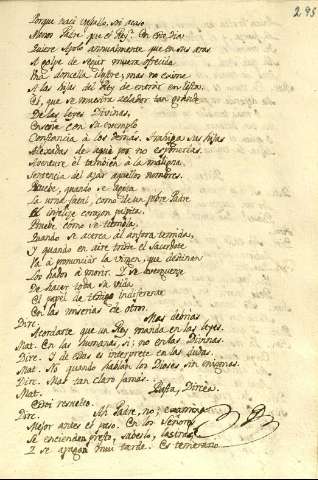 295
Porque nací vasallo, soi acaso
Menos Padre que el Rey? En este dia
Quiere Apolo annualmente que en sus aras
A golpe de segur muera ofrecida
Una doncella ilustre; mas no exime
A las hijas del Rey de entrar en lista.
El, que se muestra zelador tan grande
De las leyes Divinas,
Enseñe con su exemplo
Constancia à los demás. Trahiga sus hijas
Alexadas de aqui por no exponerlas.
Aventure él tambien à la maligna
Sentencia del azar aquellos nombres.
Pruebe, quando se agita
La urna fatal, como de un pobre Padre
El infelize corazon palpita.
Pruebe como se tiembla,
Quando se acerca al anfora temida,
Y quando en aire triste el Sacerdote
Va à pronunciar la virgen, que destinan
Los hados à morir. Y se averguenze
De hacer toda su vida
El papel de testigo indiferente
En las miserias de otros.
Dirc. Mas debrias
Acordarte que un Rey manda en las leyes.
Mat. En las humanas, si; no en las Divinas.
Dirc. Y de ellas es interprete en las dudas.
Mat. No quando hablan los Dioses sin enigmas.
Dirc. Mas tan claro jamás.
Mat. Basta, Dircéa.
Estoi resuelto.
Dirc. Ah Padre, no;
Mejor antes el paso. En los Señores
Se encienden presto, sabeslo, las iras,
Y se apagan mui tarde. Es temerario